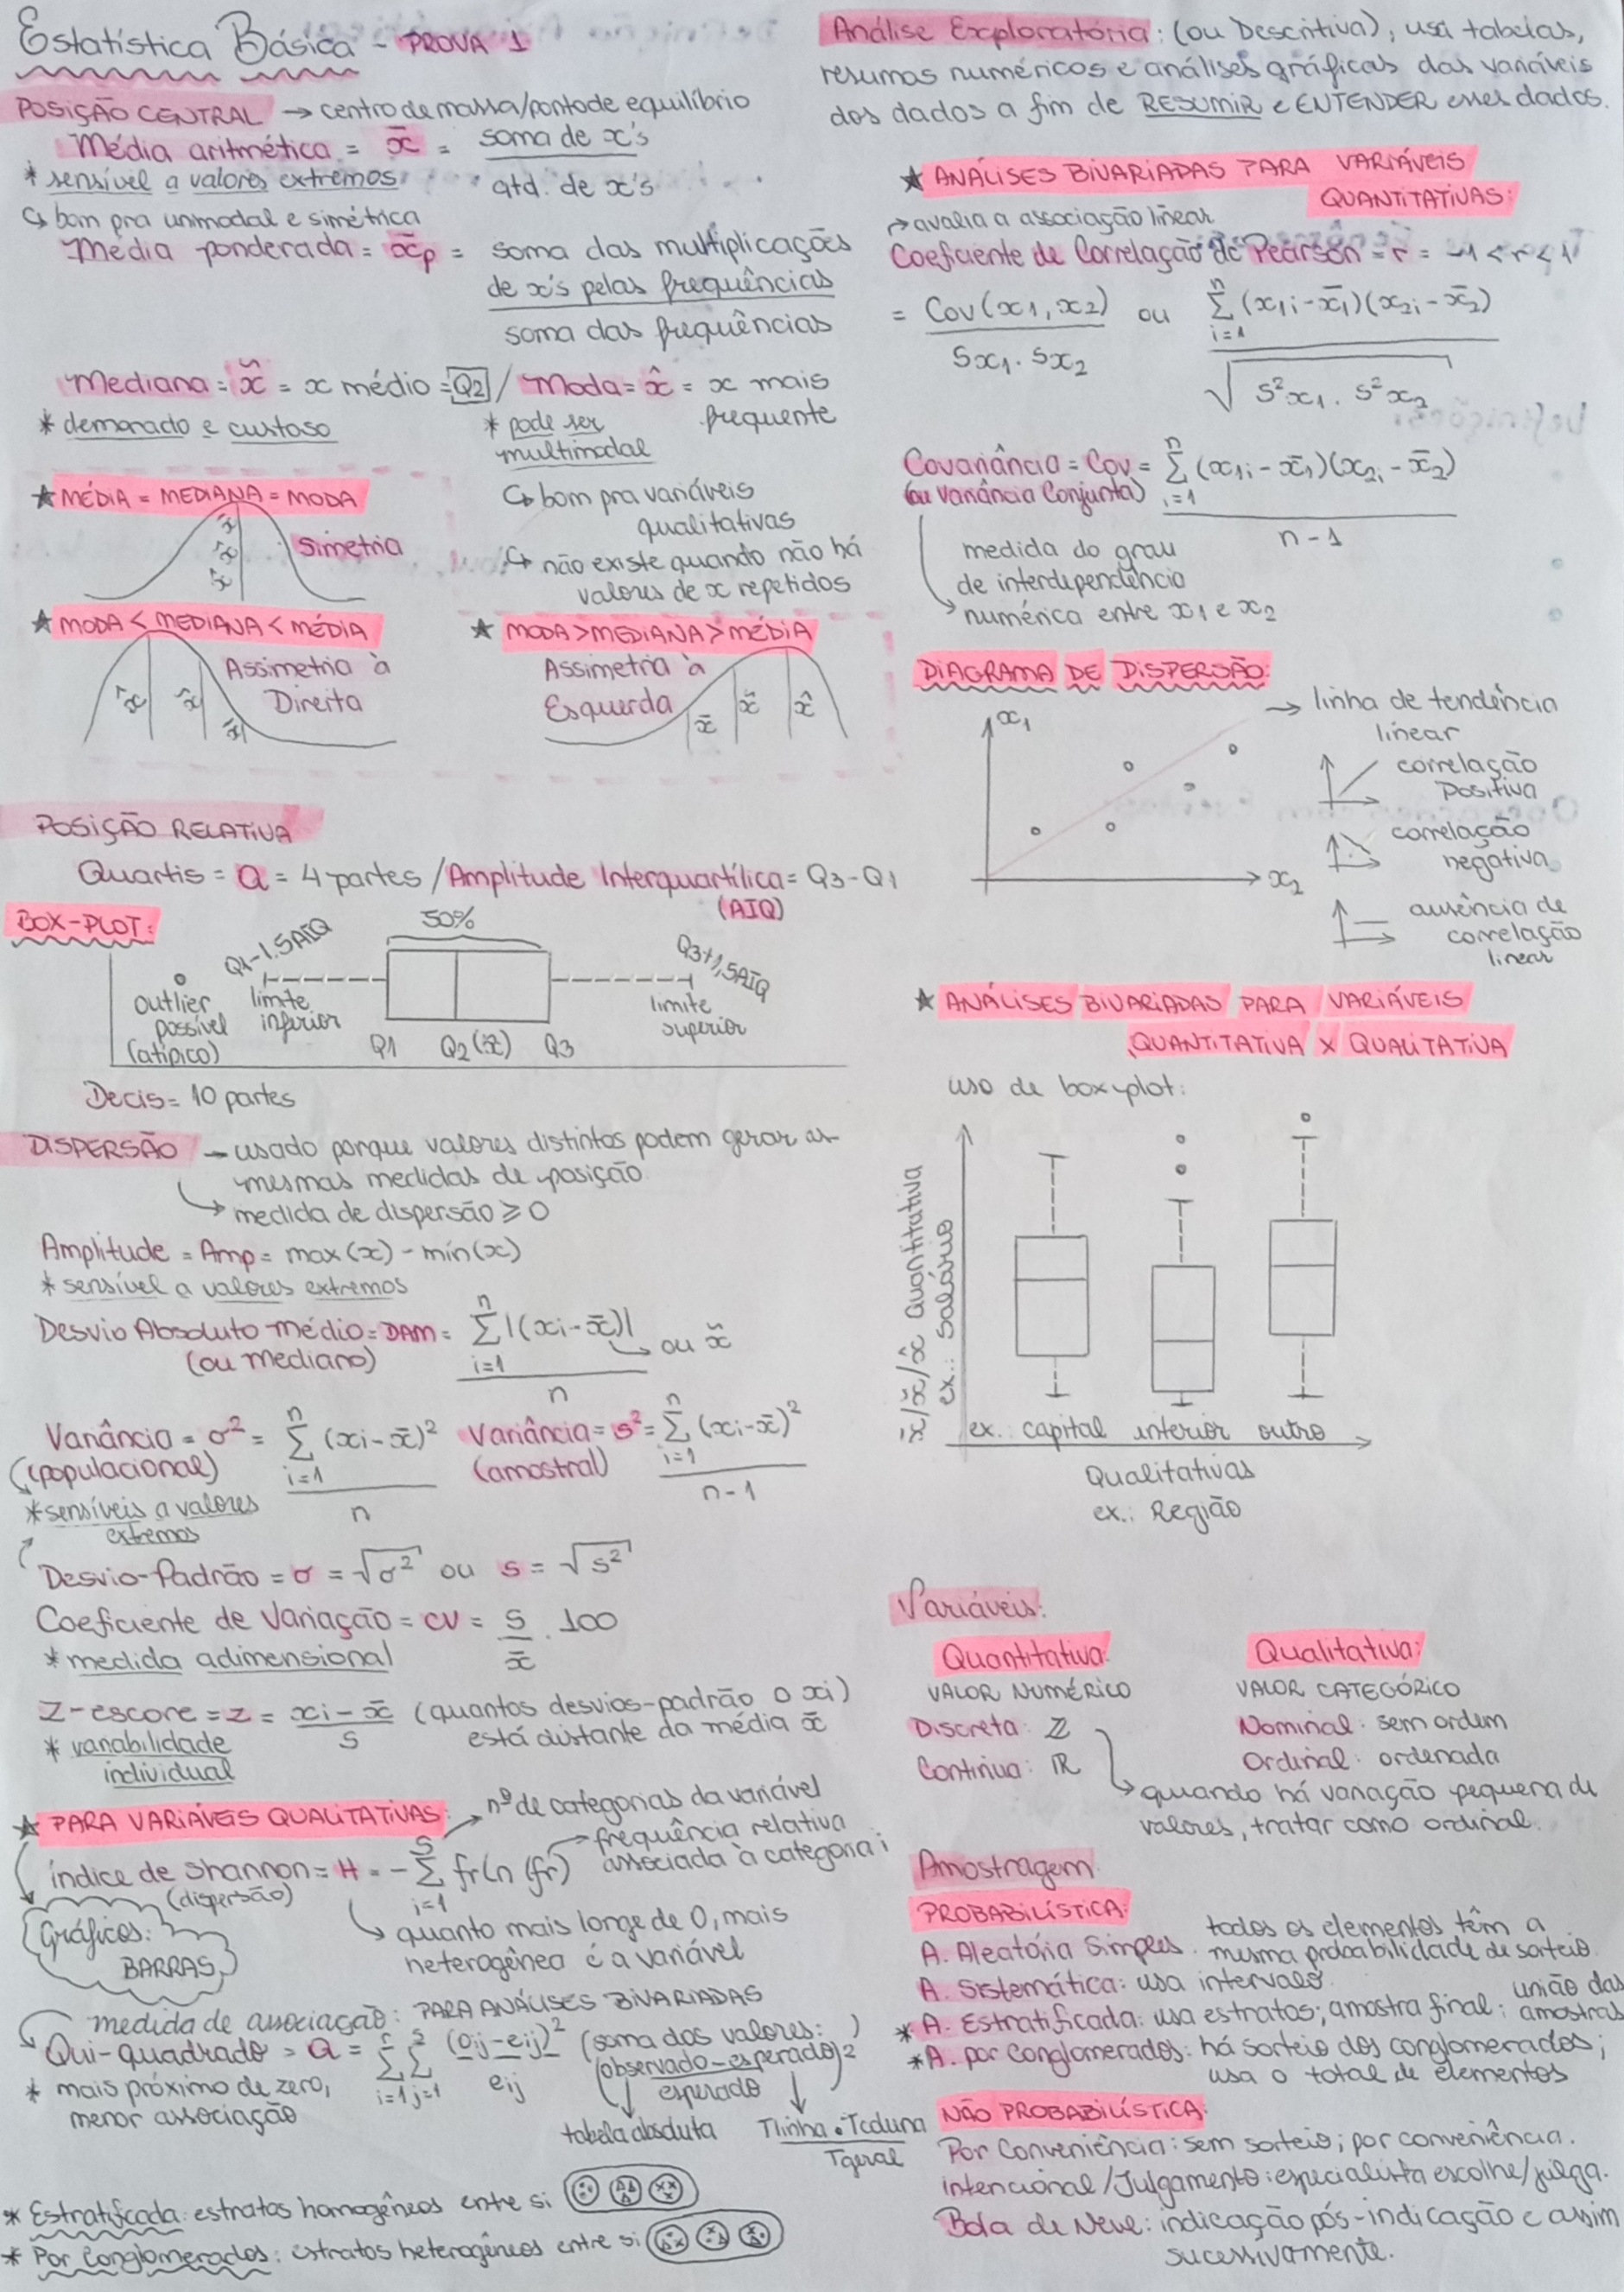 Estatística Básica - PROVA 1
POSIÇÃO CENTRAL → centro de massa/ponto de equilíbrio
Média aritmética = x̄ = soma de x's
qtd. de x's
* sensível a valores extremos
↳ bom pra unimodal e simétrica
Média ponderada = x̄p = soma das multiplicações
de x's pelas frequências
soma das frequências
Mediana = x̌ = x médio = Q2 / Moda = x̂ = x mais
frequente
* demorado e custoso
* pode ser
multimodal
↳ bom pra variáveis
qualitativas
↳ não existe quando não há
valores de x repetidos
★ MÉDIA = MEDIANA = MODA
Simetria
★ MODA < MEDIANA < MÉDIA
Assimetria à
Direita
★ MODA > MEDIANA > MÉDIA
Assimetria à
Esquerda
x̄ x̌ x̂
POSIÇÃO RELATIVA
Quartis = Q = 4 partes / Amplitude Interquartílica = Q3-Q1
(AIQ)
BOX-PLOT:
50%
Q1-1.5AIQ
Q3+1,5AIQ
outlier
possível
(atípico)
limite
inferior
limite
superior
Q1 Q2(x̌) Q3
Decis = 10 partes
DISPERSÃO → usado porque valores distintos podem gerar as
mesmas medidas de posição
↳ medida de dispersão ≥ 0
Amplitude = Amp = max(x) - min(x)
* sensível a valores extremos
Desvio Absoluto médio = DAM = n Σ i=1 |(xi-x̄)| → ou x̌
(ou mediano)
n
Variância = σ² = n Σ i=1 (xi-x̄)²
(populacional)
n
Variância = s² = n Σ i=1 (xi-x̄)²
(amostral)
n-1
* sensíveis a valores
extremos
Desvio-Padrão = σ = √σ² ou s = √s²
Coeficiente de Variação = CV = s/x̄ . 100
* medida adimensional
Z-escore = z = xi - x̄ (quantos desvios-padrão o xi)
s está distante da média x̄
* variabilidade
individual
★ PARA VARIÁVEIS QUALITATIVAS:
nº de categorias da variável
frequência relativa
associada à categoria i
índice de Shannon = H = - s Σ i=1 fr ln (fr)
(dispersão)
↳ quanto mais longe de 0, mais
heterogênea é a variável
Gráficos:
BARRAS
medida de associação: PARA ANÁLISES BIVARIADAS
Qui-quadrado = Q = r Σ i=1 s Σ j=1 (oij-eij)² (soma dos valores: )
eij
(observado-esperado)²
esperado
* mais próximo de zero,
menor associação
tabela absoluta
Tlinha . Tcoluna
Tgeral
* Estratificada: estratos homogêneos entre si
* Por Conglomerados: estratos heterogêneos entre si
Análise Exploratória: (ou Descritiva), usa tabelas,
resumos numéricos e análises gráficas das variáveis
dos dados a fim de RESUMIR e ENTENDER esses dados.
★ ANÁLISES BIVARIADAS PARA VARIÁVEIS
QUANTITATIVAS:
→ avalia a associação linear
Coeficiente de Correlação de Pearson = r = -1 < r < 1
= Cov(x1, x2) ou n Σ i=1 (x1i-x̄1)(x2i-x̄2)
Sx1 . Sx2
√ s²x1 . s²x2
Covariância = Cov = n Σ i=1 (x1i-x̄1)(x2i-x̄2)
(ou Variância Conjunta)
n-1
medida do grau
de interdependência
numérica entre x1 e x2
DIAGRAMA DE DISPERSÃO:
x1
x2
→ linha de tendência
linear
correlação
Positiva
correlação
negativa
ausência de
correlação
linear
★ ANÁLISES BIVARIADAS PARA VARIÁVEIS
QUANTITATIVA X QUALITATIVA
uso de boxplot:
x̄/x̌/x̂ Quantitativa
ex.: Salário
ex.: capital interior outro
Qualitativas
ex.: Região
Variáveis:
Quantitativa:
VALOR NUMÉRICO
Discreta: ℤ
Contínua: ℝ
Qualitativa:
VALOR CATEGÓRICO
Nominal: sem ordem
Ordinal: ordenada
↳ quando há variação pequena de
valores, tratar como ordinal.
Amostragem
PROBABILÍSTICA:
A. Aleatória Simples: todos os elementos têm a
mesma probabilidade de sorteio.
A. Sistemática: usa intervalos
* A. Estratificada: usa estratos; amostra final: união das
amostras
* A. por Conglomerados: há sorteio dos conglomerados;
usa o total de elementos
NÃO PROBABILÍSTICA:
Por Conveniência: sem sorteio; por conveniência.
intencional/Julgamento: especialista escolhe/julga.
Bola de Neve: indicação pós-indicação e assim
sucessivamente.